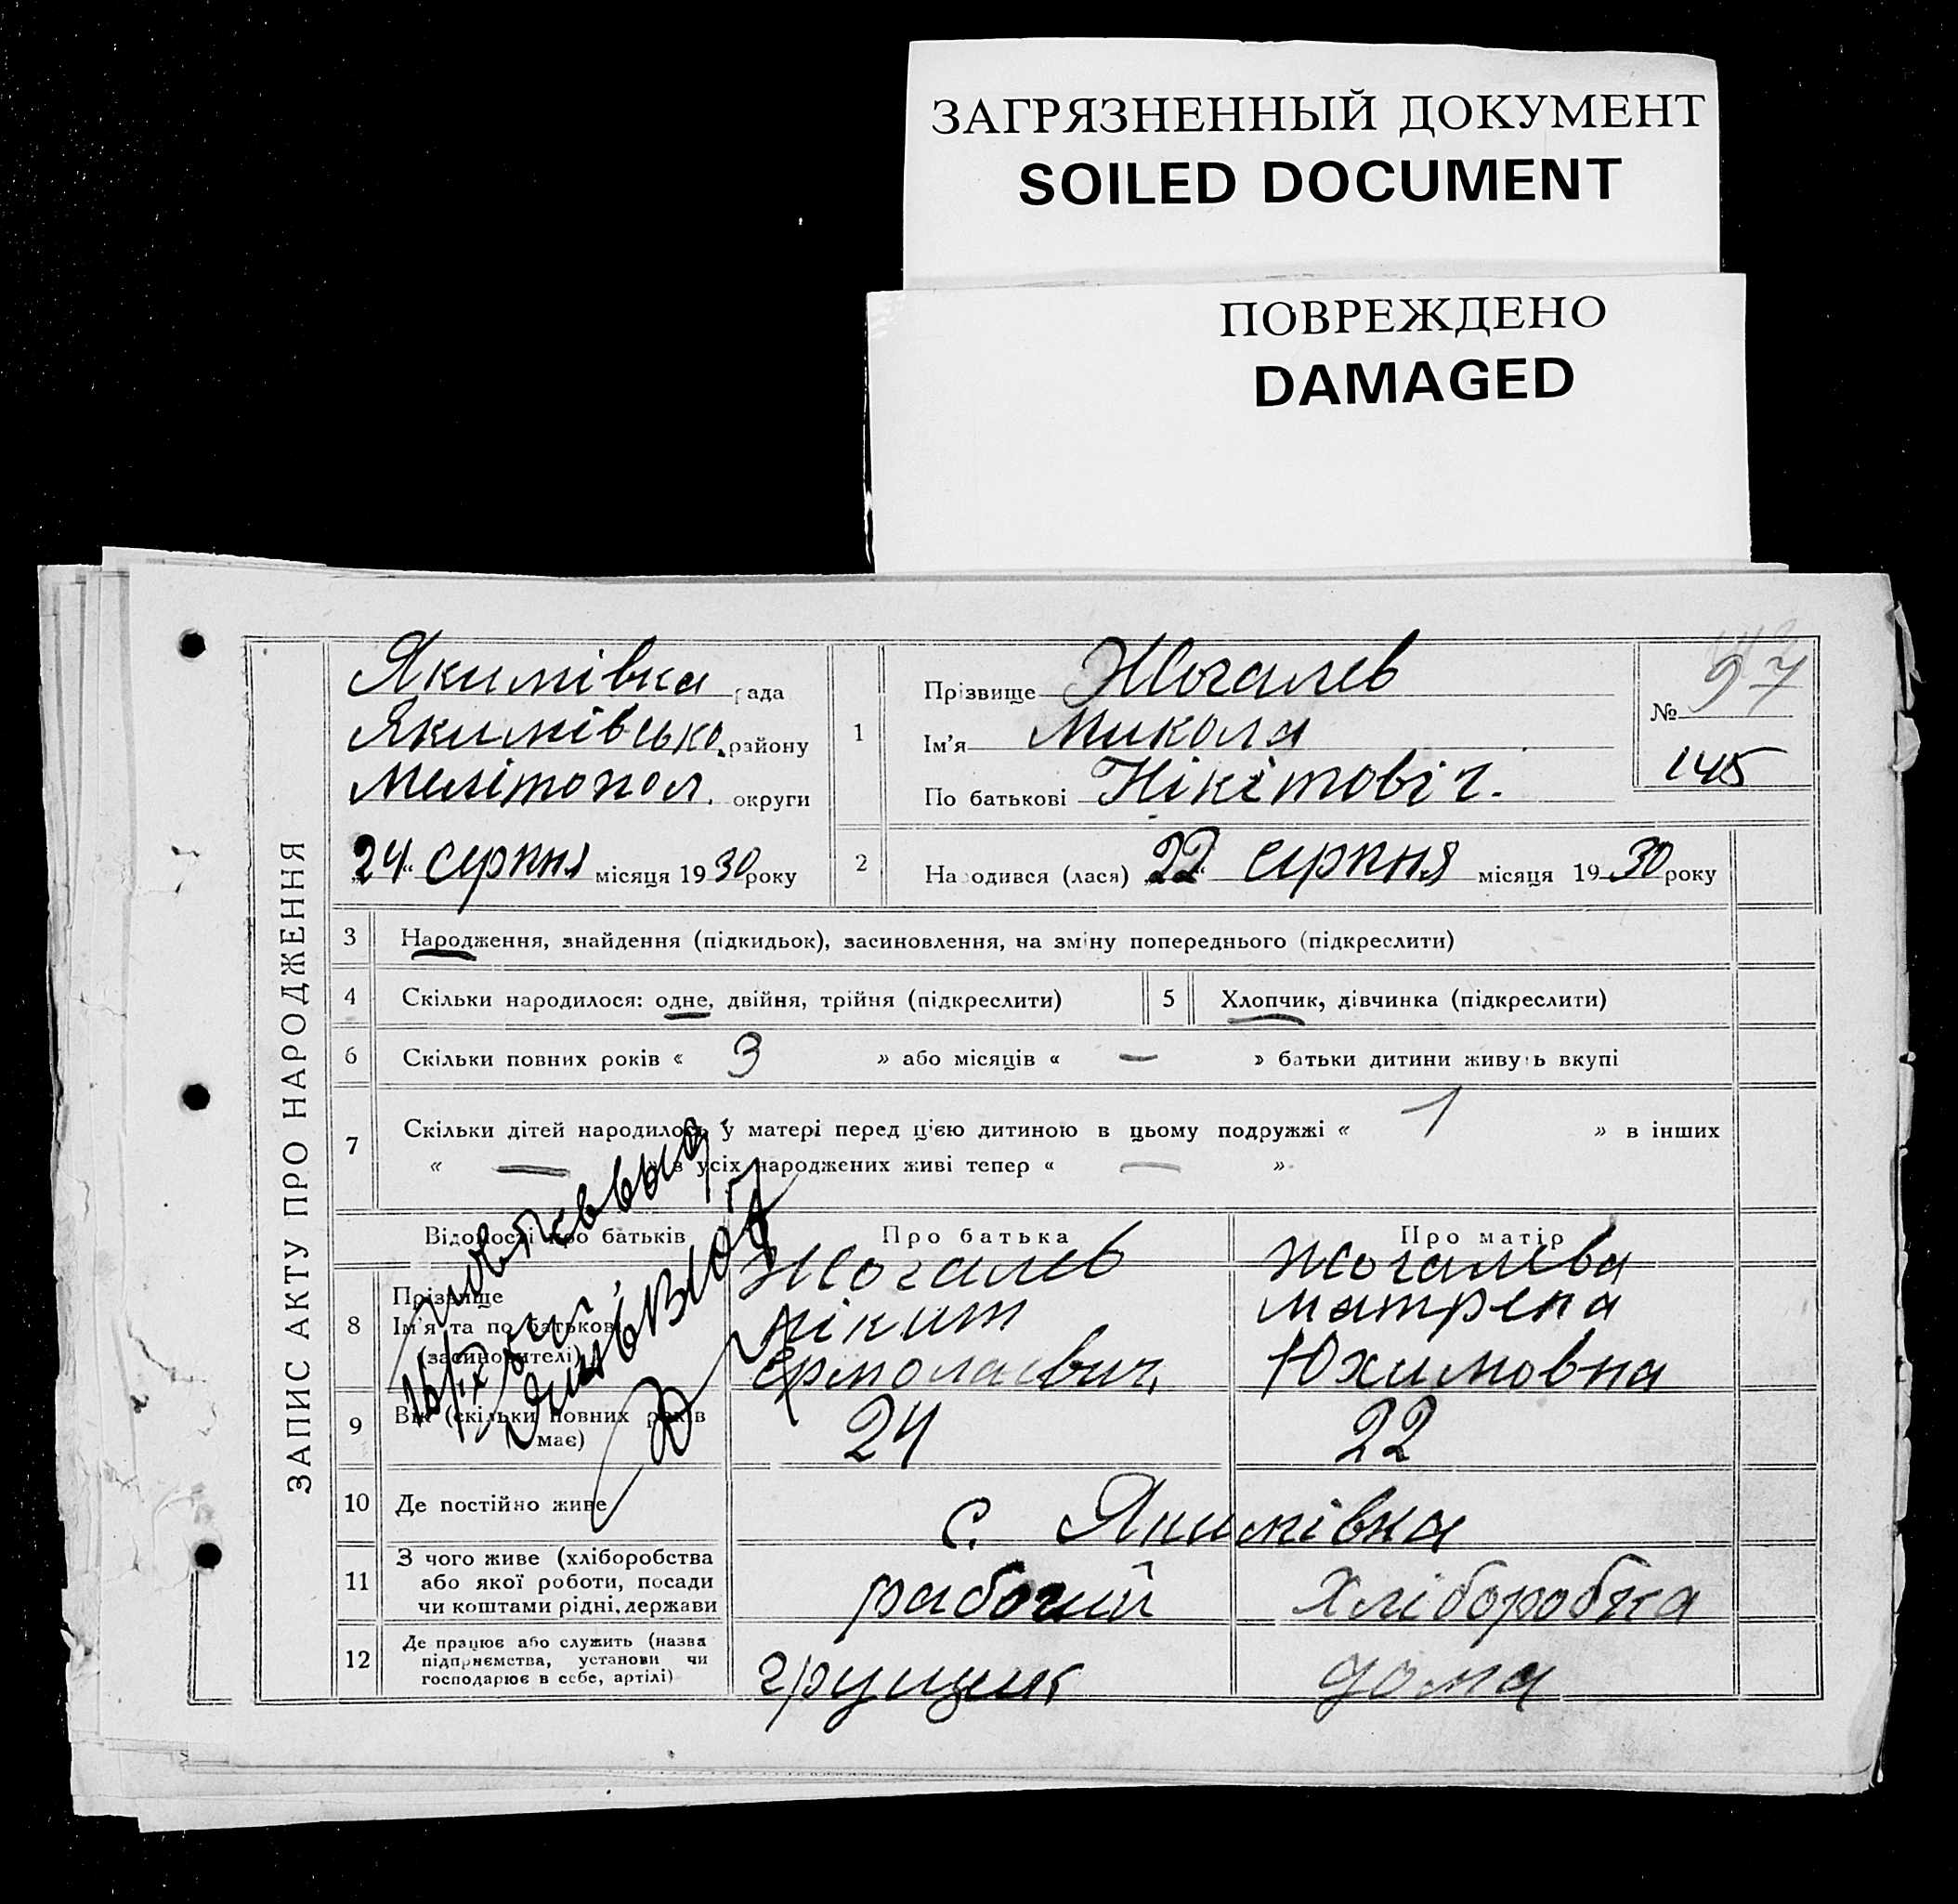 ЗАГРЯЗНЕННЫЙ ДОКУМЕНТ
SOILED DOCUMENT
ПОВРЕЖДЕНО
DAMAGED
ЗАПИС АКТУ ПРО НАРОДЖЕННЯ
Якимівка рада
Якимівсько району
Мелітопол. округи
"24" серпня місяця 1930 року
1 Прізвище Жогалев
Ім'я Микола
По батькові Нікітовіч.
№ 97
145
2 Народився (лася) "22" серпня місяця 1930 року
3 Народження, знайдення (підкидьок), засиновлення, на зміну попереднього (підкреслити)
4 Скільки народилося: одне, двійня, трійня (підкреслити) 5 Хлопчик, дівчинка (підкреслити)
6 Скільки повних років « 3 » або місяців « — » батьки дитини живуть вкупі
7 Скільки дітей народилось у матері перед цією дитиною в цьому подружжі « 1 » в інших
« — » з усіх народжених живі тепер « — »
Відомості про батьків Про батька Про матір
8 Прізвище Жогалев Жогалева
Ім'я та по батькові Нікит Матрена
(засиновителі) Ермолаевич Юхимовна
9 Вік (скільки повних років має) 24 22
10 Де постійно живе с. Якимівка
11 З чого живе (хліборобства
або якої роботи, посади
чи коштами рідні, держави рабочий Хліборобка
12 Де працює або служить (назва
підприємства, установи чи
господарює в себе, артілі) грущик дома
16/IX